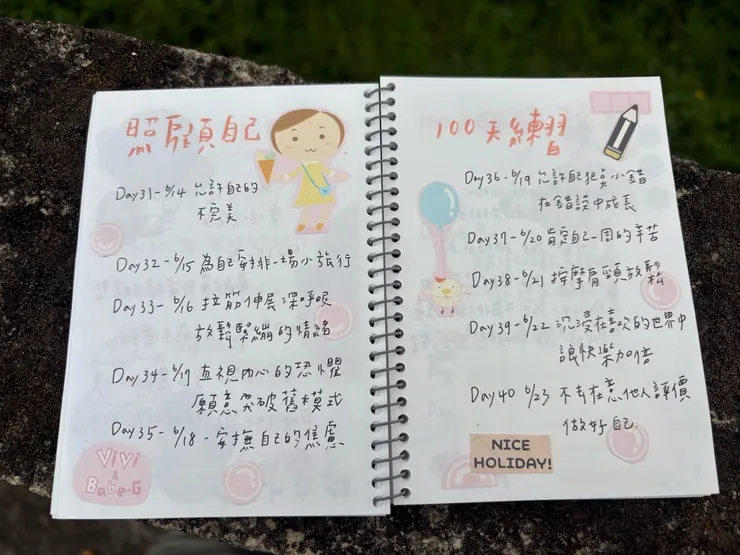 照顧自己
Day31-6/14 允許自己的
不完美
Day32-6/15 為自己安排一場小旅行
Day33-6/16 拉筋伸展深呼吸
放鬆緊繃的情緒
Day34-6/17 直視內心的恐懼
願意突破舊模式
Day35-6/18-安撫自己的焦慮
ViVi
&
Babe-G
100天練習
Day36-6/19 允許自己犯點小錯
在錯誤中成長
Day37-6/20 肯定自己一周的辛苦
Day38-6/21 按摩肩頸放鬆
Day39-6/22 沉浸在喜欢的世界中
讓快樂加倍
Day40 6/23 不去在意他人評價
做好自己.
NICE
HOLIDAY!